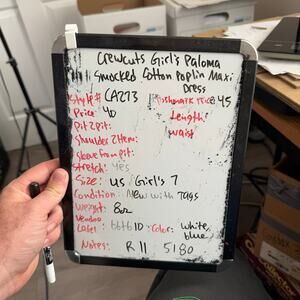 Crewcuts Girl's Paloma
Smocked Cotton Poplin Maxi
Dress
Style # CA273
Poshmark Price 45
Price: 40
Length:
Pit 2 pit:
waist
Shoulder 2 Hem:
Sleeve from pit:
Stretch: yes
Size: US Girl's 7
Condition: New with Tags
Weight: 8oz
Vendoo
Label: Color: white,
blue
Notes: R 11 5180